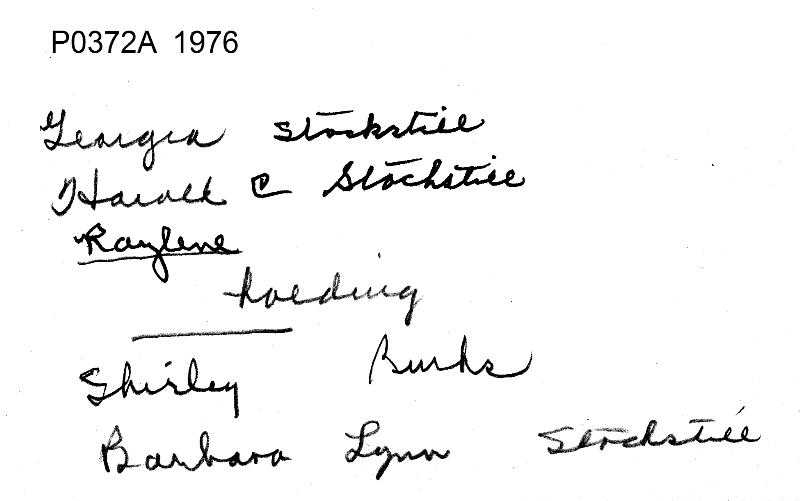 P0372A 1976
Georgia Stockstill
Harold C Stockstill
Raylene
holding
Shirley Burks
Barbara Lynn Stockstill